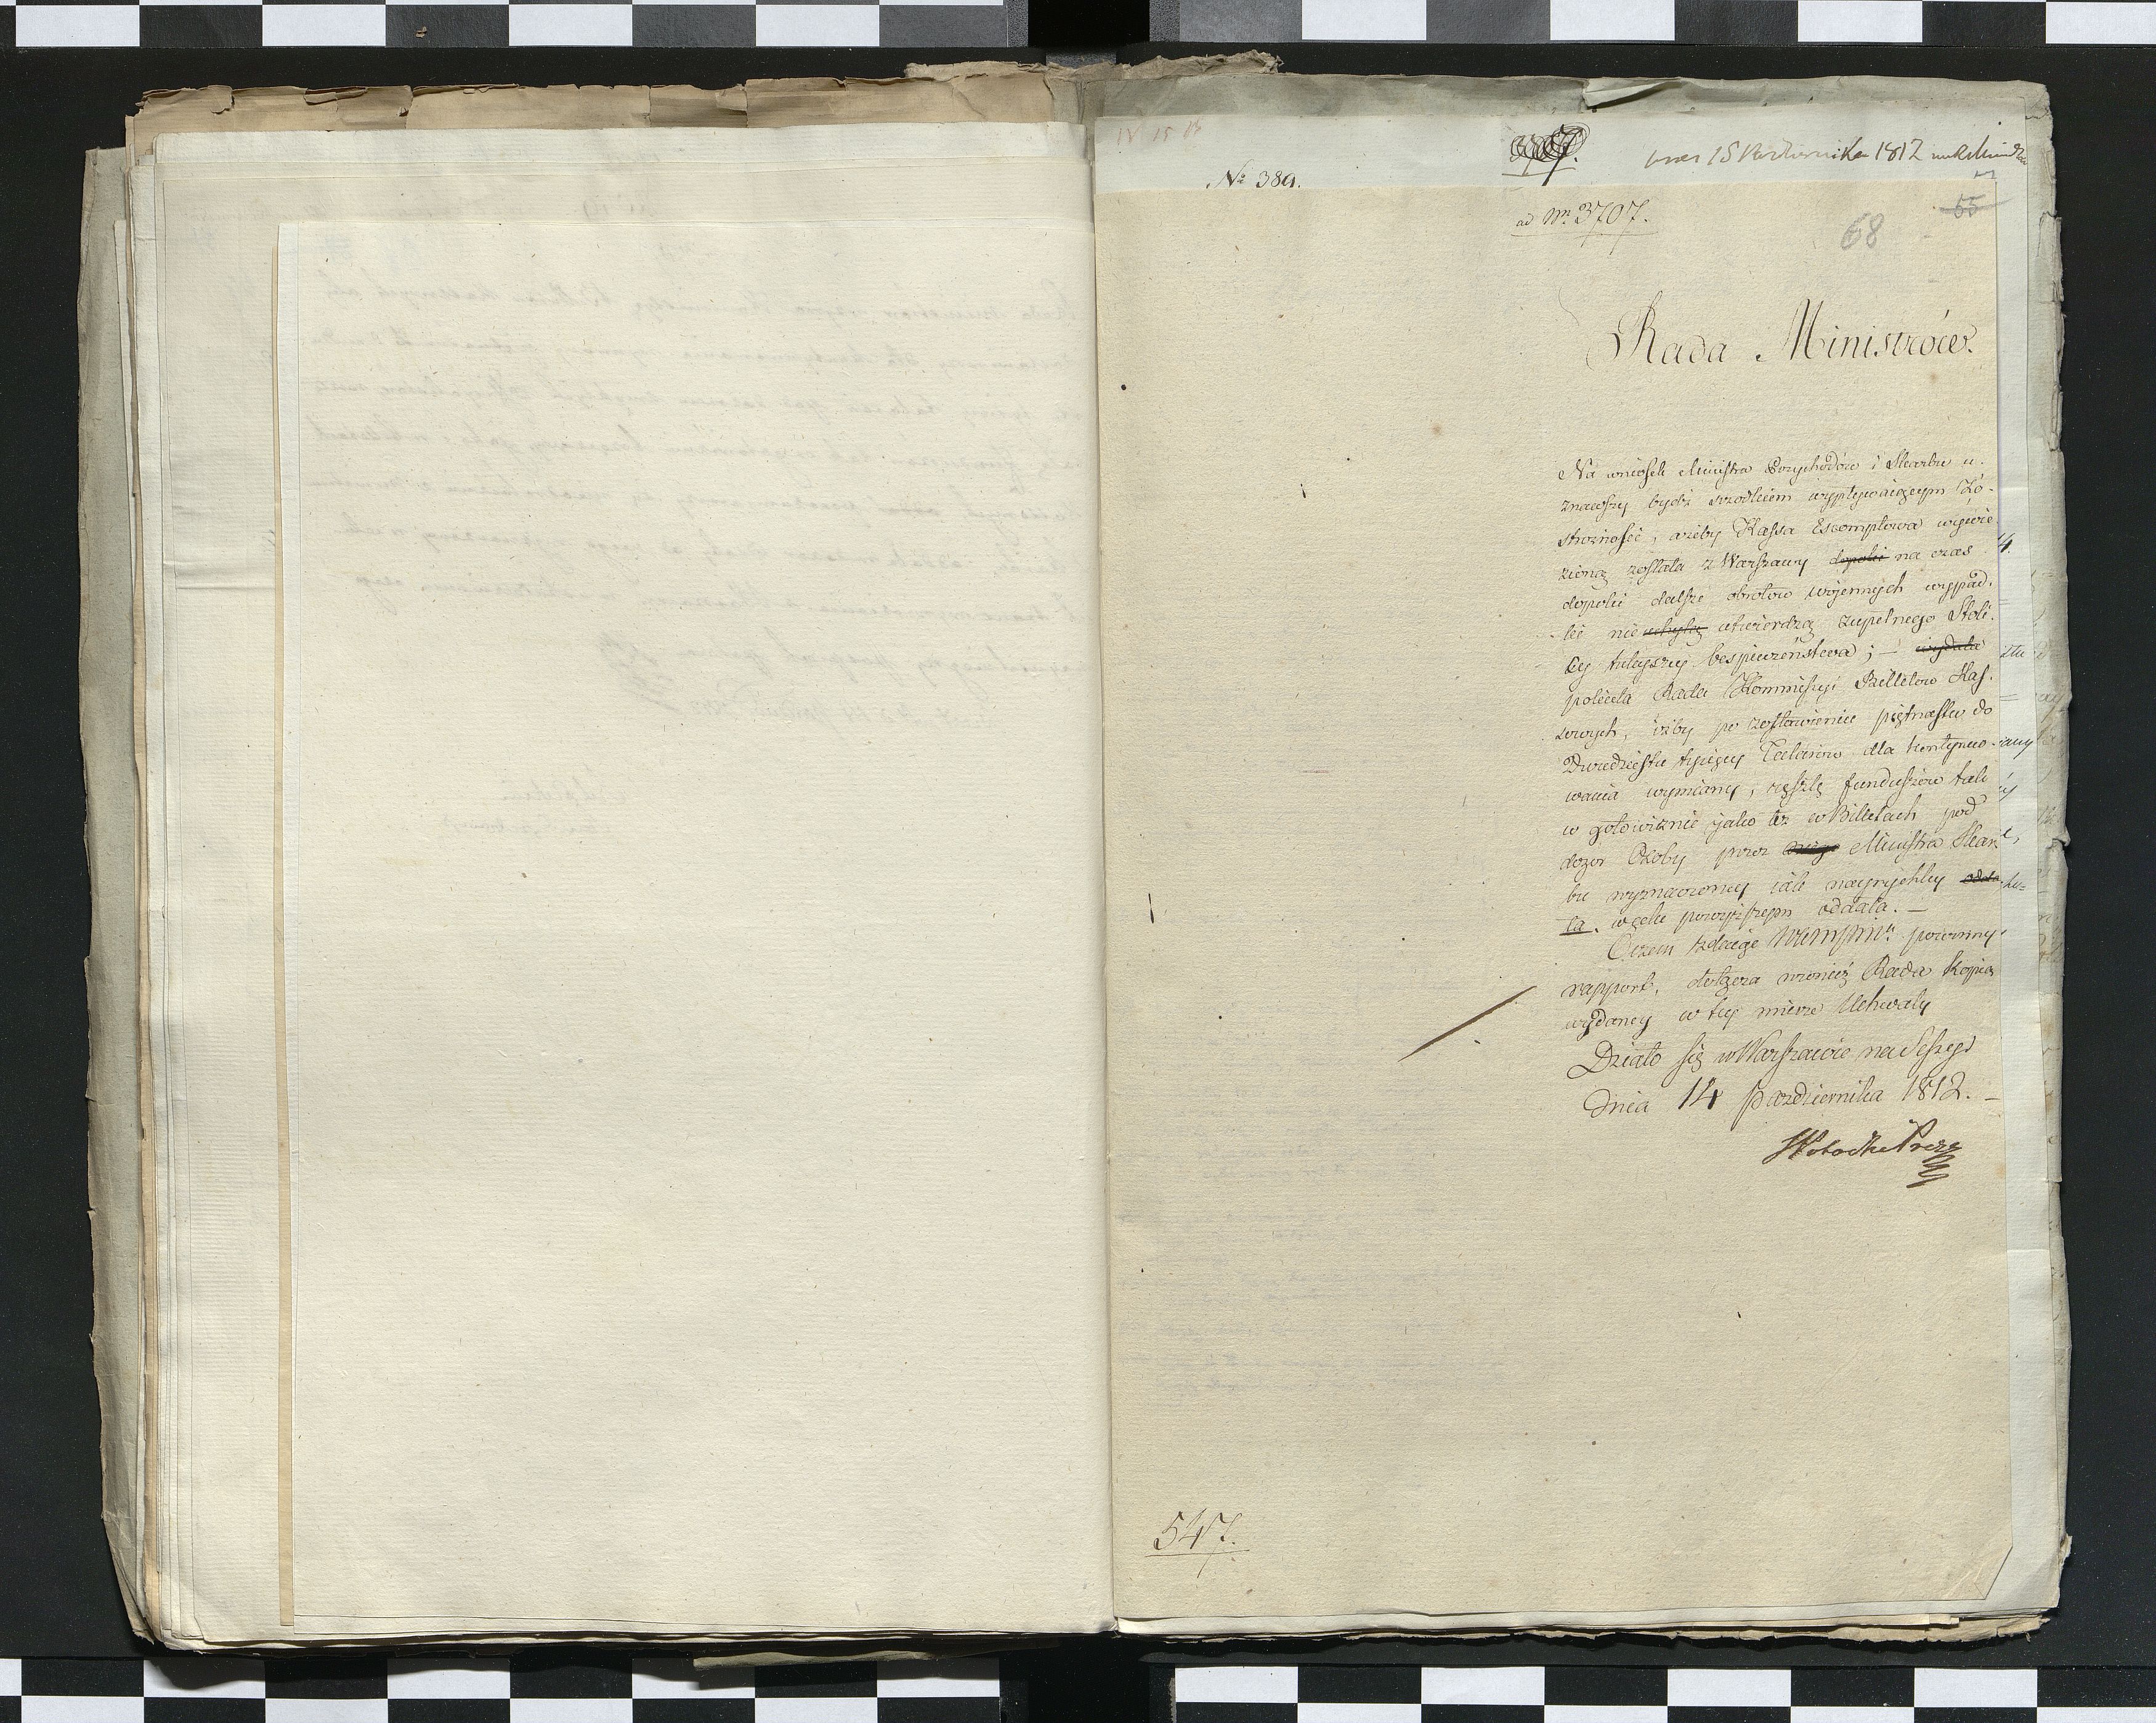 № 389.
15 Października 1812
ad Nr. 3707.
55
68
Rada Ministrów.
Na wniosek Ministra Przychodów i Skarbu u-
znawszy bydź srzodkiem wypływaiącym Zo-
strożności, ażeby Kassa Escomptowa wywie-
zioną została z Warszawy dopoki na czas
dopoki dalsze obrotow woiennych wypad-
ki nie utwierdzą zupełnego Stoli-
cy tuteyszey bespieczeństwa; - wydała
poleciła Rada Kommissyi Billetow Kas-
sowych, iżby po zostawieniu piętnastu do
Dwudziestu tysięcy Talarow dla kontynuo-
wania wymiany, resztę funduszów tak
w gotowiznie jako też w Billetach pod
dozor Osoby przez Ministra Skar-
bu wyznaczoney iak nayrychley
ła. w celu powyższym oddała. -
O czem zdaiąc powinny
rapport, dołącza nionieyś Rada kopią
wydaney w tey mierze Uchwały
Działo się w Warszawie na Sessyi
Dnia 14 Października 1812. -
547.